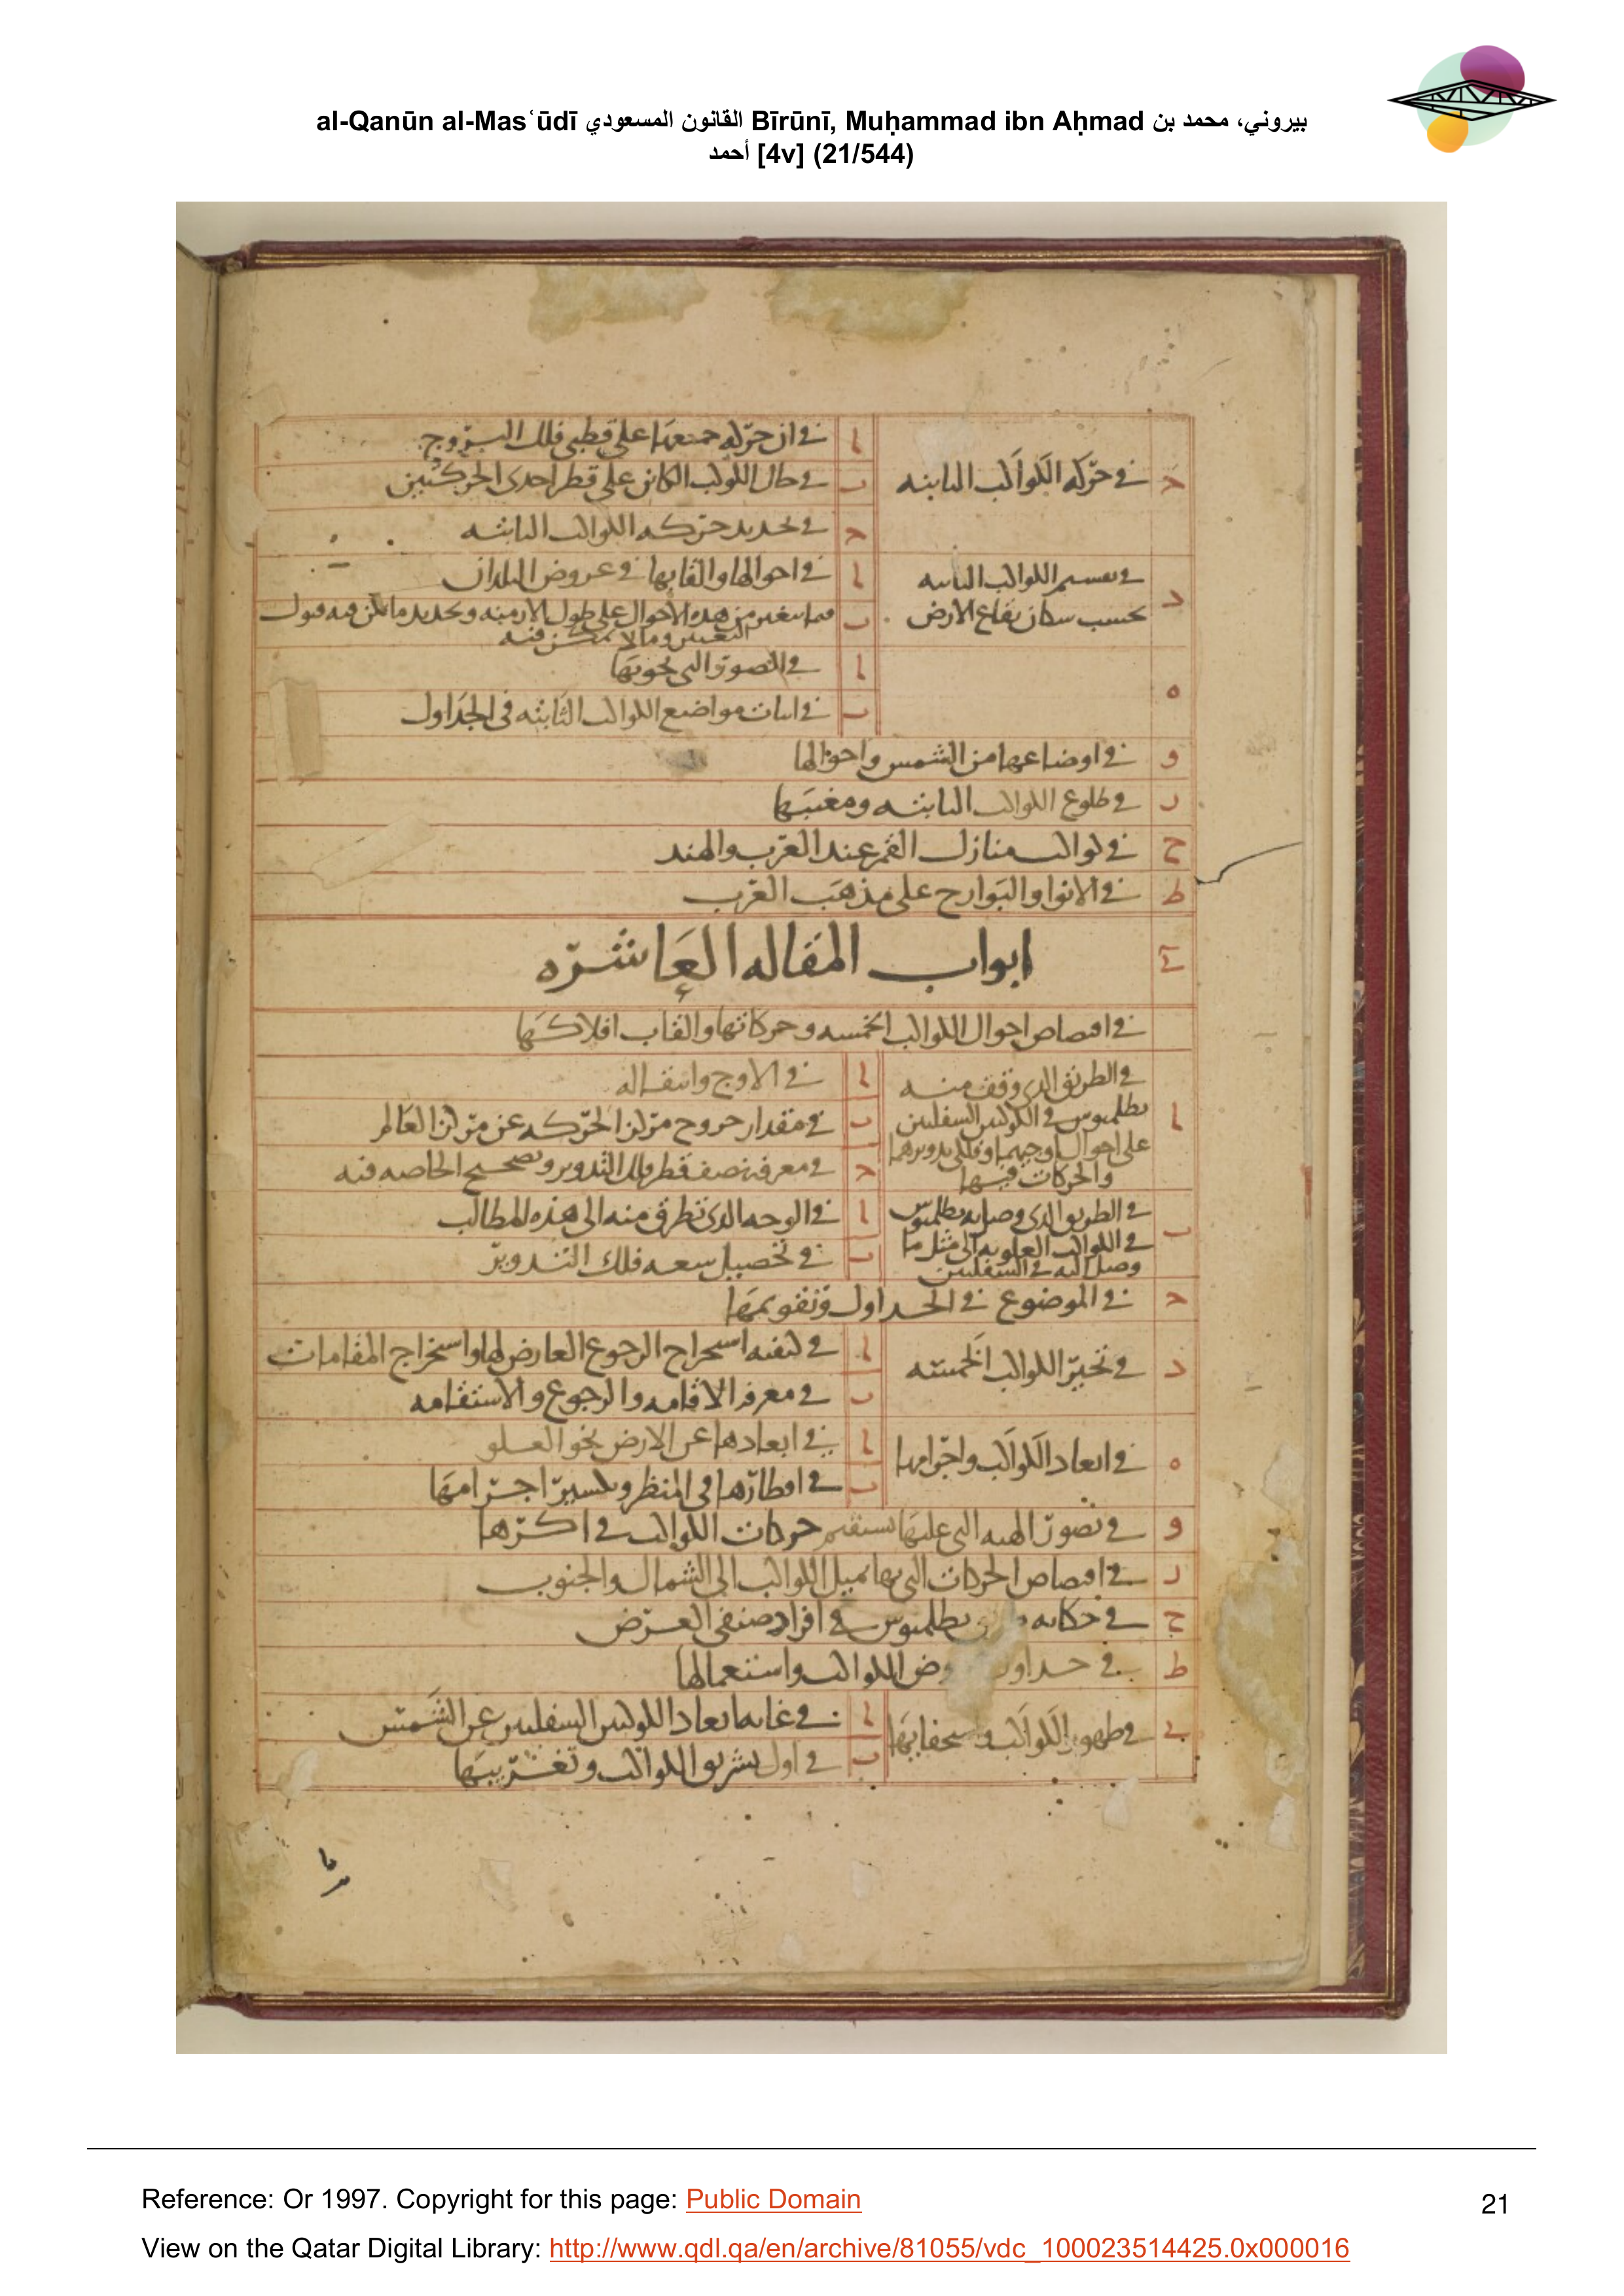 al-Qanūn al-Masʿūdī القانون المسعودي Bīrūnī, Muḥammad ibn Aḥmad بيروني، محمد بن
أحمد [4v] (21/544)
ح في حركه الكواكب الثابته
ا في ان حركه جميعها على قطبي فلك البروج
ب في حال الكوكب الكائن على قطر احدى الحركتين
ح في تحديد حركه الكواكب الثابته
د في تقسيم الكواكب الثابته
بحسب سكان بقاع الارض
ا في احوالها والقابها في عروض البلدان
ب فيما يتغير من هذه الاحوال على طول الازمنه وتحديد ما يمكن فيه قبول
التغيير وما لا يمكن فيه
ه
ا في الصور التي تحويها
ب في اثبات مواضع الكواكب الثابته في الجداول
و في اوضاعها من الشمس واحوالها
ز في طلوع الكواكب الثابته ومغيبها
ح في كواكب منازل القمر عند العرب والهند
ط في الانوا والبوارح على مذهب العرب
ي ابواب المقاله العاشره
في اقتصاص احوال الكواكب الخمسه وحركاتها والقاب افلاكها
ا في الطريق الذي وقف منه
بطلميوس في الكوكبين السفليين
على احوال اوجيهما وفلكي تدويرهما
والحركات فيها
ا في الاوج وانتقاله
ب في مقدار خروج مركز الحركه عن مركز العالم
ح في معرفه نصف قطر فلك التدوير وتصحيح الخاصه فيه
ب في الطريق الذي وصل به بطلميوس
في الكواكب العلويه الى مثل ما
وصل اليه في السفليين
ا في الوجه الذي تطرق منه الى هذه المطالب
ب في تحصيل سعه فلك التدوير
ح في الموضوع في الجداول وتقويمها
د في تحير الكواكب الخمسه
ا في كيفيه استخراج الرجوع العارض لها واستخراج المقامات
ب في معرفه الاقامه والرجوع والاستقامه
ه في ابعاد الكواكب واجرامها
ا في ابعادها عن الارض نحو العلو
ب في اقطارها في المنظر وتكسير اجرامها
و في تصور الهيه التي عليها تستقيم حركات الكواكب في اكرها
ز في اقتصاص الحركات التي بها تميل الكواكب الى الشمال والجنوب
ح في حكايه بطلميوس في افراد صنفي العرض
ط في جداول عروض الكواكب واستعمالها
ي في ظهور الكواكب واستخفايها
ا في غايه ابعاد الكوكبين السفليين عن الشمس
ب في اول تشريق الكواكب وتغريبها
Reference: Or 1997. Copyright for this page: Public Domain
21
View on the Qatar Digital Library: http://www.qdl.qa/en/archive/81055/vdc_100023514425.0x000016